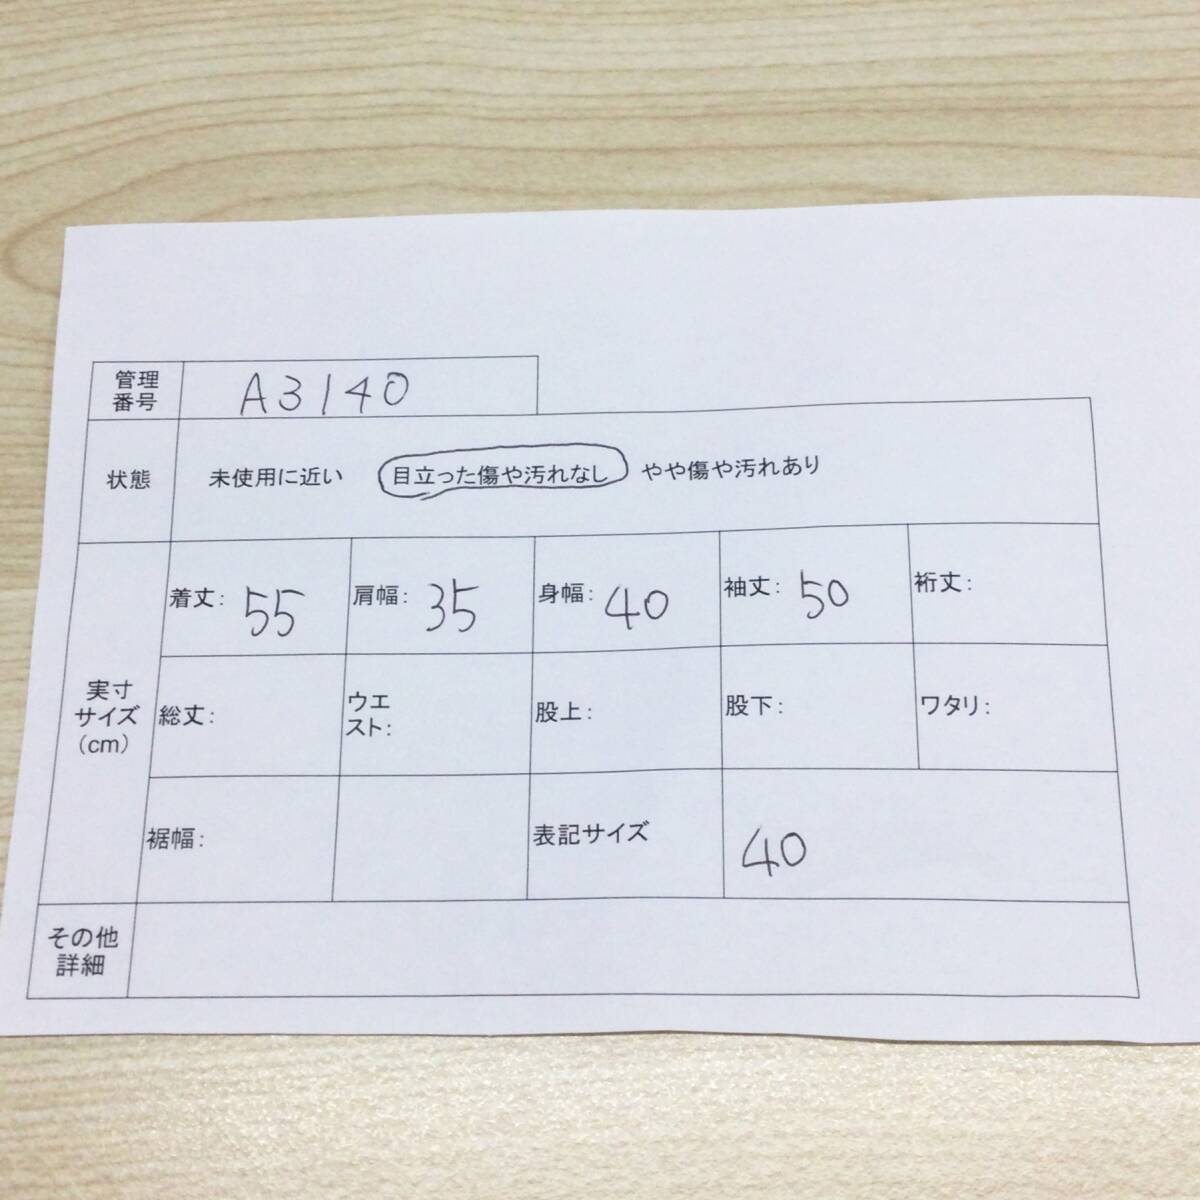 管理
番号
A3140
状態
未使用に近い 目立った傷や汚れなし やや傷や汚れあり
実寸
サイズ
(cm)
着丈: 55
肩幅: 35
身幅: 40
袖丈: 50
裄丈:
総丈:
ウエ
スト:
股上:
股下:
ワタリ:
裾幅:
表記サイズ
40
その他
詳細